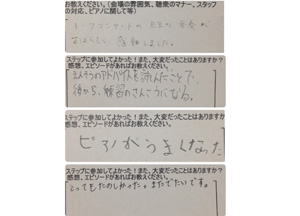 お教えください。(会場の雰囲気、聴衆のマナー、スタッフ
の対応、ピアノに関して等)
トークコンサートの先生の音楽が
すばらしく、感動しました。
ステップに参加してよかった!また、大変だったことはありますか?
感想、エピソードがあればお教えください。
まえからのアドバイスを読んだことで、
後から、練習のさんこうになる。
ステップに参加してよかった!また、大変だったことはありますか?
感想、エピソードがあればお教えください。
ピアノがうまくなった
ステップに参加してよかった!また、大変だったことはありますか?
感想、エピソードがあればお教えください。
とってもたのしかった。またでたいです。